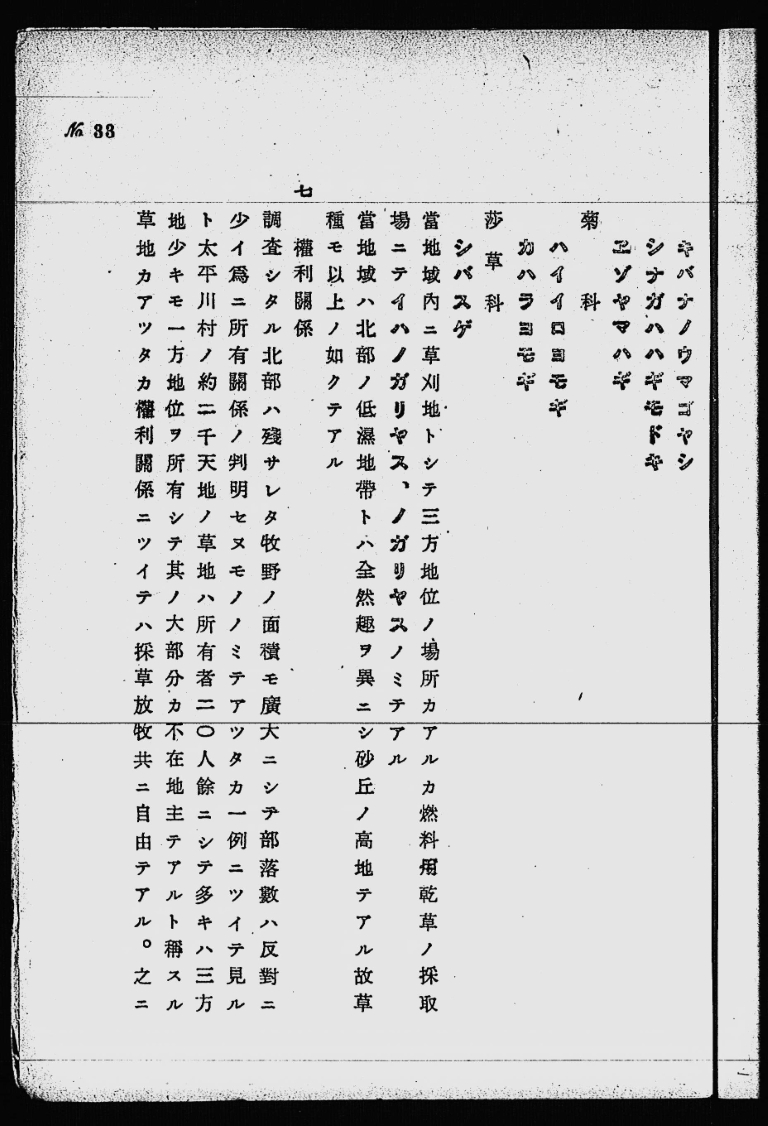 No 33
キバナノウマゴヤシ
シナガハハギモドキ
エゾヤマハギ
菊科
ハイイロヨモギ
カハラヨモギ
莎草科
シバスゲ
當地域内ニ草刈地トシテ三方地位ノ場所カアルカ燃料用乾草ノ採取
場ニテイハノガリヤス、ノガリヤスノミテアル
當地域ハ北部ノ低濕地帶トハ全然趣ヲ異ニシ砂丘ノ高地テアル故草
種モ以上ノ如クテアル
七 權利關係
調査シタル北部ハ殘サレタ牧野ノ面積モ廣大ニシテ部落數ハ反對ニ
少イ爲ニ所有關係ノ判明セヌモノノミテアツタカ一例ニツイテ見ル
ト太平川村ノ約二千天地ノ草地ハ所有者二〇人餘ニシテ多キハ三方
地少キモ一方地位ヲ所有シテ其ノ大部分カ不在地主テアルト稱スル
草地カアツタカ權利關係ニツイテハ採草放牧共ニ自由テアル。之ニ